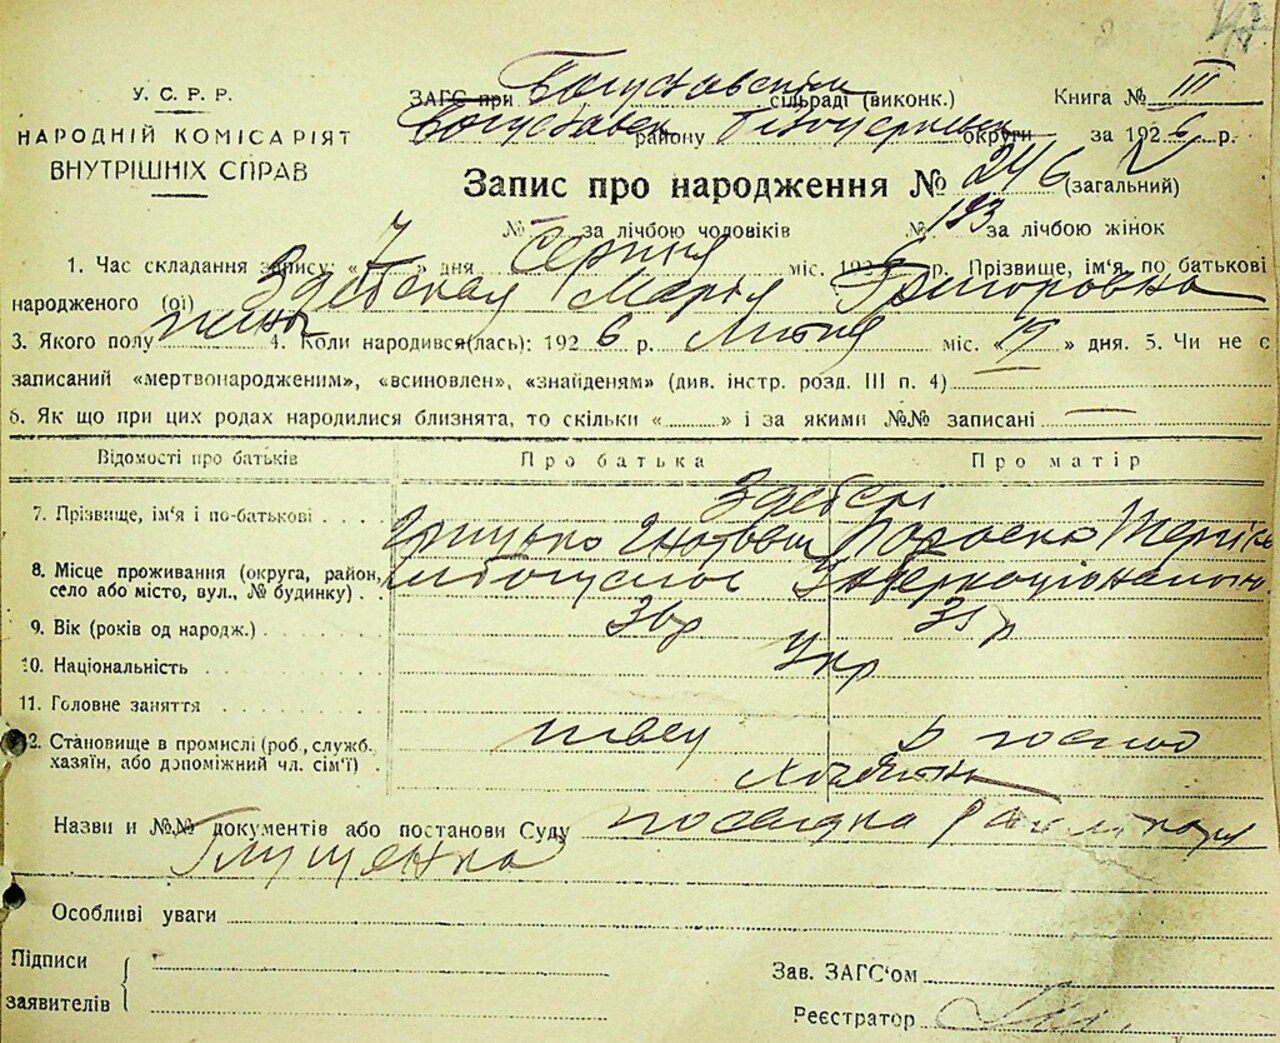 У. С. Р. Р.
НАРОДНІЙ КОМІСАРІЯТ
ВНУТРІШНІХ СПРАВ
ЗАГС при Богуславській сільраді (виконк.) Книга № III
Богуславськ району Білоцерківськ округи за 1926 р.
Запис про народження № 246 (загальний)
№ — за лічбою чоловіків № 123 за лічбою жінок
1. Час складання запису: «7» дня Серпня міс. 1926 р. Прізвище, ім'я, по батькові
народженого (ої) Здебская Марія Григоровна
3. Якого полу жіноч 4. Коли народився(лась): 1926 р. Липня міс. «19» дня. 5. Чи не є
записаний «мертвонародженим», «всиновлен», «знайденям» (див. інстр. розд. III п. 4)
6. Як що при цих родах народилися близнята, то скільки «.........» і за якими №№ записані —
Відомості про батьків Про батька Про матір
7. Прізвище, ім'я і по-батькові Здебскі
Грицько Гнатович Параска
8. Місце проживання (округа, район, село або місто, вул., № будинку) м Богуслав
9. Вік (років од народж.) 36р 31 р
10. Національність Укр
11. Головне заняття
12. Становище в промислі (роб., служб. хазяїн, або допоміжний чл. сім'ї) швец
Назви и №№ документів або постанови Суду посвідка
Глущенка
Особливі уваги
Підписи
заявителів
Зав. ЗАГС'ом
Реєстратор